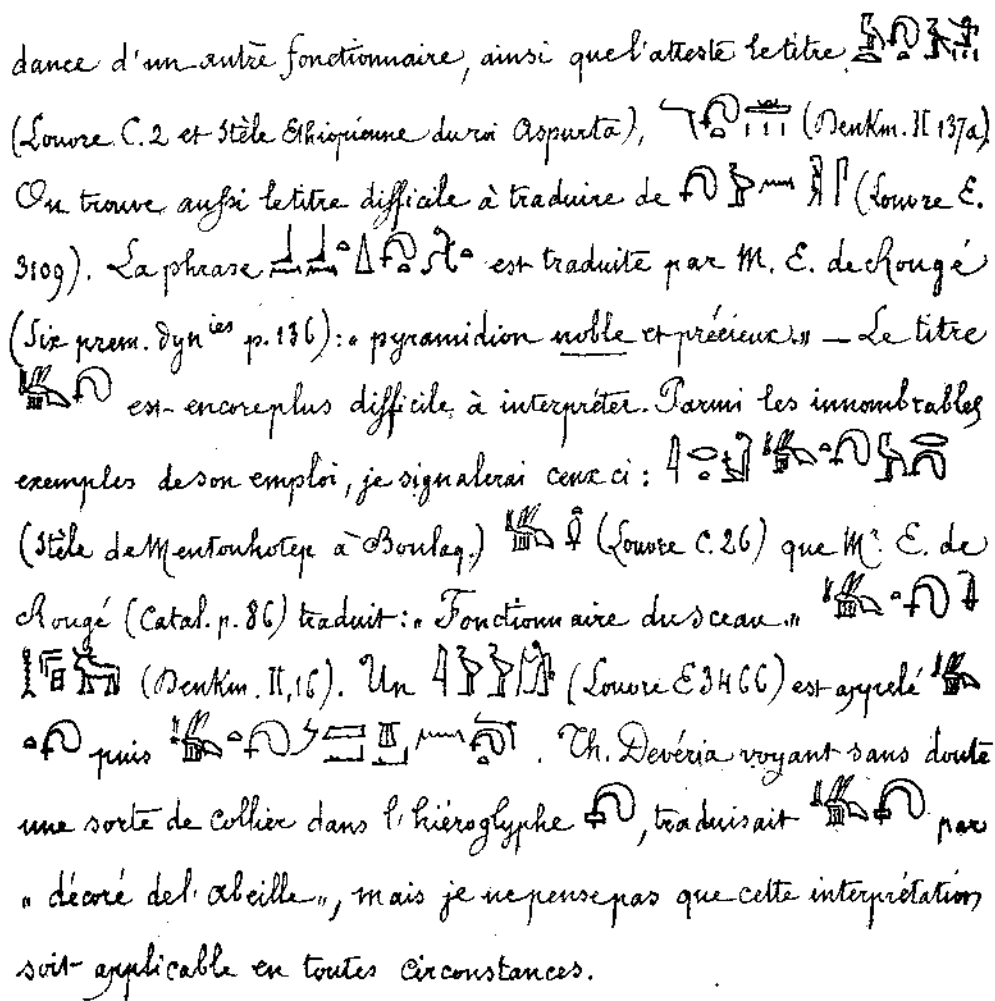 dance d'un autre fonctionnaire, ainsi que l'atteste le titre
(Louvre C. 2 et Stèle Ethiopienne du roi Aspurta), (Denkm. II 137a)
On trouve aussi le titre difficile à traduire de (Louvre E.
3109). La phrase est traduite par M. E. de Rougé
(Six prem. dyn^ies p. 136) : « pyramidion noble et précieux » — Le titre
est encore plus difficile à interpréter. Parmi les innombrables
exemples de son emploi, je signalerai ceux ci :
(Stèle de Mentouhotep à Boulaq.) (Louvre C. 26) que M^r. E. de
Rougé (Catal. p. 86) traduit : « Fonctionnaire du sceau. »
(Denkm. II, 16). Un (Louvre E 3466) est appelé
puis . Th. Devéria voyant sans doute
une sorte de collier dans l'hiéroglyphe , traduisait par
« décoré de l'abeille », mais je ne pense pas que cette interprétation
soit applicable en toutes circonstances.